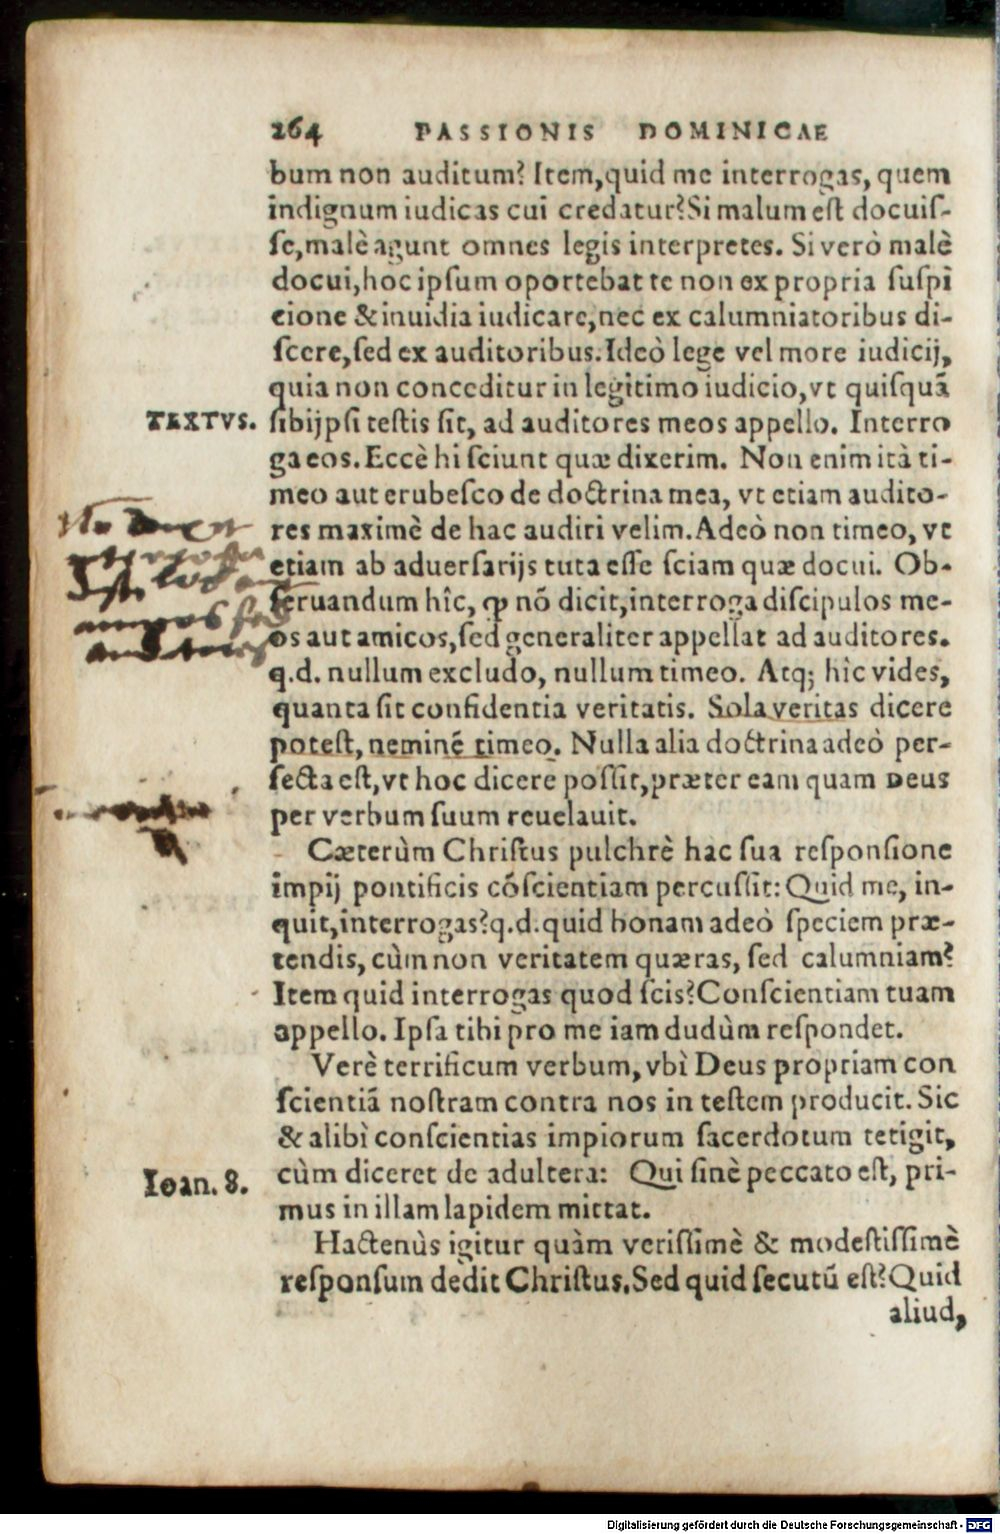 264 PASSIONIS DOMINICAE
bum non auditum? Item, quid me interrogas, quem
indignum iudicas cui credatur? Si malum est docuiſ-
ſe, malè agunt omnes legis interpretes. Si verò malè
docui, hoc ipſum oportebat te non ex propria ſuſpi
cione & inuidia iudicare, nec ex calumniatoribus di-
ſcere, ſed ex auditoribus. Ideò lege vel more iudicij,
quia non conceditur in legitimo iudicio, vt quiſquã
TEXTVS. ſibijpſi teſtis ſit, ad auditores meos appello. Interro
ga eos. Eccè hi ſciunt quæ dixerim. Non enim ità ti-
meo aut erubeſco de doctrina mea, vt etiam audito-
res maximè de hac audiri velim. Adeò non timeo, vt
etiam ab aduerſarijs tuta eſſe ſciam quæ docui. Ob-
ſeruandum hîc, ꝙ nõ dicit, interroga diſcipulos me-
os aut amicos, ſed generaliter appellat ad auditores.
q.d. nullum excludo, nullum timeo. Atq; hîc vides,
quanta ſit confidentia veritatis. Sola veritas dicere
poteſt, neminẽ timeo. Nulla alia doctrina adeò per-
fecta eſt, vt hoc dicere poſſit, præter eam quam DEUS
per verbum ſuum reuelauit.
Cæterùm Chriſtus pulchrè hac ſua reſponſione
impij pontificis cõſcientiam percuſſit: Quid me, in-
quit, interrogas? q.d. quid bonam adeò ſpeciem præ-
tendis, cùm non veritatem quæras, ſed calumniam?
Item quid interrogas quod ſcis? Conſcientiam tuam
appello. Ipſa tibi pro me iam dudùm reſpondet.
Verè terrificum verbum, vbì Deus propriam con
ſcientiã noſtram contra nos in teſtem producit. Sic
& alibì conſcientias impiorum ſacerdotum tetigit,
Ioan. 8. cùm diceret de adultera: Qui ſinè peccato eſt, pri-
mus in illam lapidem mittat.
Hactenùs igitur quàm veriſſimè & modeſtiſſimè
reſponſum dedit Chriſtus. Sed quid ſecutũ eſt? Quid
aliud,
Digitalisierung gefördert durch die Deutsche Forschungsgemeinschaft - DFG